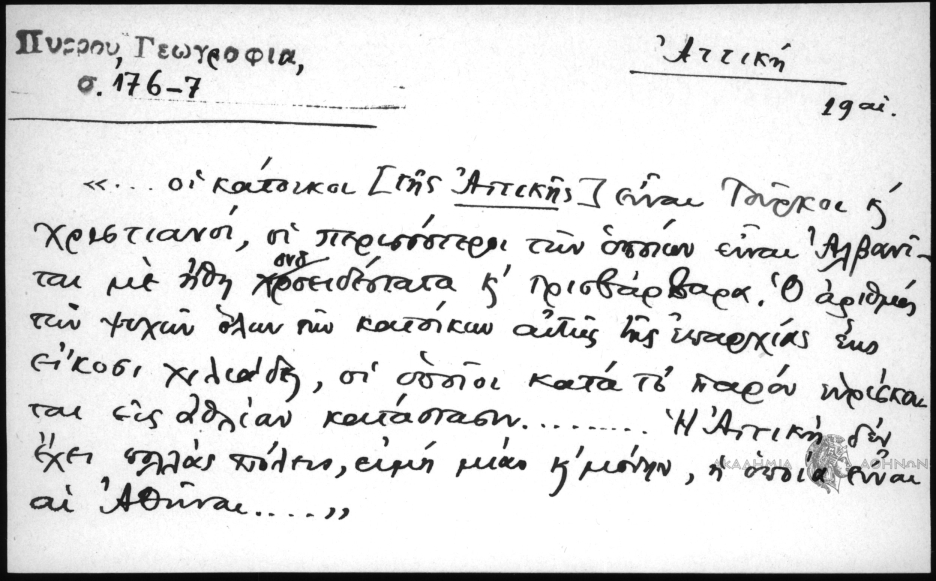 Πυρρου, Γεωγραφια,
σ. 176-7
Ἀττική
19 αἰ.
«... οἱ κάτοικοι [τῆς Ἀττικῆς] εἶναι Τοῦρκοι κ'
χριστιανοί, οἱ περισσότεροι τῶν ὁποίων εἶναι Ἀλβανῖ-
ται μὲ ἤθη κ' τρισβάρβαρα. Ὁ ἀριθμός
τῶν ψυχῶν ὅλων τῶν κατοίκων αὐτῆς τῆς ἐπαρχίας ἕως
εἴκοσι χιλιάδες, οἱ ὁποῖοι κατά τό παρόν εὑρίσκον
ται εἰς ἀθλίαν κατάστασιν......... Ἡ Ἀττική δέν
ἔχει πολλάς πόλεις, εἰμή μίαν κ' μόνην, ἡ ὁποία εἶναι
αἱ Ἀθῆναι....»
ΑΚΑΔΗΜΙΑ ΑΘΗΝΩΝ